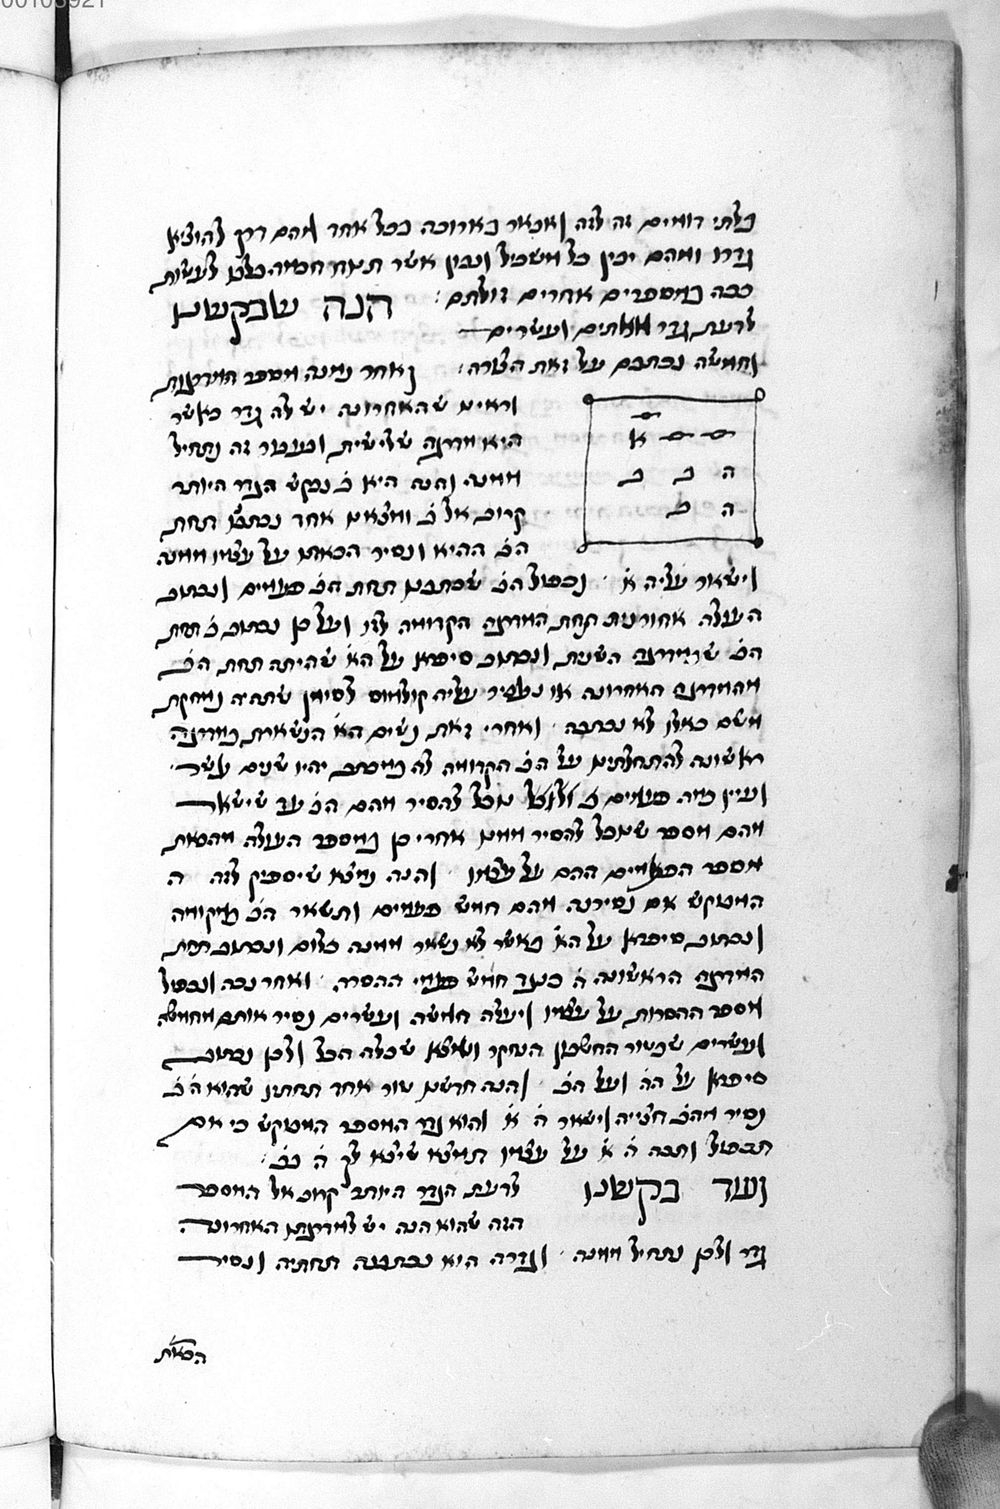 בלתי דומים זה לזה ואבאר בארוכה בכל אחד מהם דרך להוציא
גדרו ומהם יבין כל משכיל ונבון אשר חכמה בלבו לעשות
ככה במספרים אחרים זולתם: הנה שבקשנו
לדעת גדר מאתים ועשרים
וחמשה נכתבם על זאת הצורה: ואחר נמנה מספר המדרגות
וראינו שהאחרונה יש לה גדר כאשר
היא מדרגה שלישית ובעבור זה נתחיל
ממנה והנה היא ב נבקש הגדר היותר
קרוב אל ב ומצאנו אחד נכתבנו תחת
הב ההיא ונסיר הכאתו על עצמו ממנה
א
ה ב ב
ה ב
וישאר עליה א נכפול הב שכתבנו תחת הב פעמים ונכתוב
העולה אחורנית תחת המדרגה הקדומה לזו ועל כן נכתוב ב תחת
הב שבמדרגה השנית ונכתוב סיפרא על הא שהיתה תחת הב
מהמדרגה האחרונה או נעביר עליה קולמוס לסימן שתהיה נמחקת
משם כאלו לא נכתבה ואחרי זאת נשים הא הנשארת במדרגה
ראשונה להתחלתנו על הב הקדומה לה במכתב יהיו שנים עשר
ועיין כמה פעמים נוכל להסיר מהם הב עד שישאר
מהם מספר שנוכל להסיר ממנו אחרי כן במספר העולה מהכאת
מספר הפעמים ההם על עצמו והנה נמצא שיספיק לזה ה
המבוקש אם נסירנה מהם חמש פעמים ותשאר הב במקומה
ונכתוב סיפרא על הא כאשר לא נשאר ממנה כלום ונכתוב תחת
המדרגה הראשונה ה כנגד חמש פעמי ההסרה ואחר נכה ונכפול
מספר ההסרות על עצמו ויעלה חמשה ועשרים נסיר אותם מחמשה
ועשרים שבטור החשבון הנחקר ונמצא שכלה הכל ולכן נכתוב
סיפרא על הה ועל הב והנה חדשנו טור אחד תחתון שהוא ה ב
נסיר מהב חציה וישאר ה א והוא גדר המספר המבוקש כי אם
תכפול ותכה ה א על עצמו תמצא שיצא לך ה ב ב:
ועוד בקשנו לדעת הגדר היותר קרוב אל המספר
הזה שהוא הנה יש למדרגתו האחרונה
גדר ולכן נתחיל ממנה ונגדרה היא נכתבנה תחתיה ונסיר
הכאת